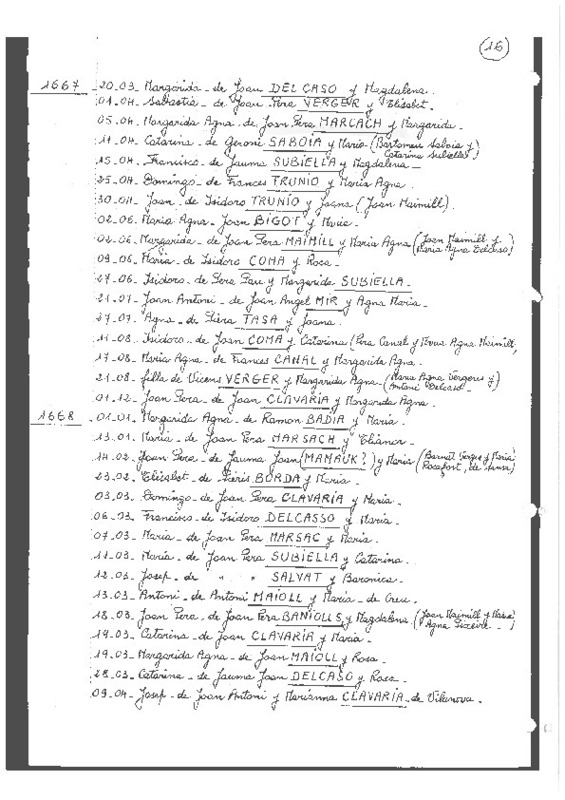 16
1667 20.03. Margarida - de Joan DEL CASO y Magdalena.
01.04. Sabastia - de Joan Pera VERGER y Elisabet.
05.04. Margarida Agna - de Joan Pera MARCACH y Margarida.
11.04. Catarina - de Geroni SABOIA y Maria (Bartomeu Saboia y Catarina Subiella)
15.04. Francisco - de Jauma SUBIELLA y Magdalena -
25.04. Domingo - de Frances TRUNIO y Maria Agna.
30.04. Joan - de Isidoro TRUNIO y Joana (Joan Maimill).
02.06. Maria Agna - Joan BIGOT y Maria -
02.06. Margarida - de Joan Pera MAIMILL y Maria Agna (Joan Maimill y Maria Agna Delcaso)
09.06. Maria - de Isidoro COMA y Rosa -
27.06. Isidoro - de Pera Pau y Margarida SUBIELLA -
21.07. Joan Antoni - de Joan Angel MIR y Agna Maria -
27.07. Agna - de TASA y Joana.
11.08. Isidoro - de Joan COMA y Catarina (Pera Canal y Maria Agna Maimill,
17.08. Maria Agna - de Frances CANAL y Margarida Agna.
21.08. filla de Vicens VERGER y Margarida Agna (Maria Agna Vergera y Antoni Delcaso -
01.12. Joan Pera - de Joan CLAVARIA y Margarida Agna.
1668 01.01. Margarida Agna - de Ramon BADIA y Maria.
13.01. Maria - de Joan Pera MARSACH y Elianor -
14.02. Joan Pera - de Jauma Joan (MAMAUK?) y Maria (Bernat Verger y Maria Rocafort, de
23.02. Elisabet - de BORDA y Maria.
03.03. Domingo - de Joan Pera CLAVARIA y Maria -
06.03. Francisco - de Isidoro DELCASSO y Maria.
07.03. Maria - de Joan Pera MARSAC y Maria.
11.03. Maria - de Joan Pera SUBIELLA y Catarina.
12.03. Josep - de " " SALVAT y Baronica -
13.03. Antoni - de Antoni MAIOLL y Maria - de Creu.
18.03. Joan Pera - de Joan Pera BANIOLLS y Magdalena (Joan Maimill y Maria Agna
19.03. Catarina - de Joan CLAVARIA y Maria -
19.03. Margarida Agna - de Joan MAIOLL y Rosa -
28.03. Catarina - de Jauma Joan DELCASO y Rosa -
09.04. Josep - de Joan Antoni y Marianna CLAVARIA de Vilanova.